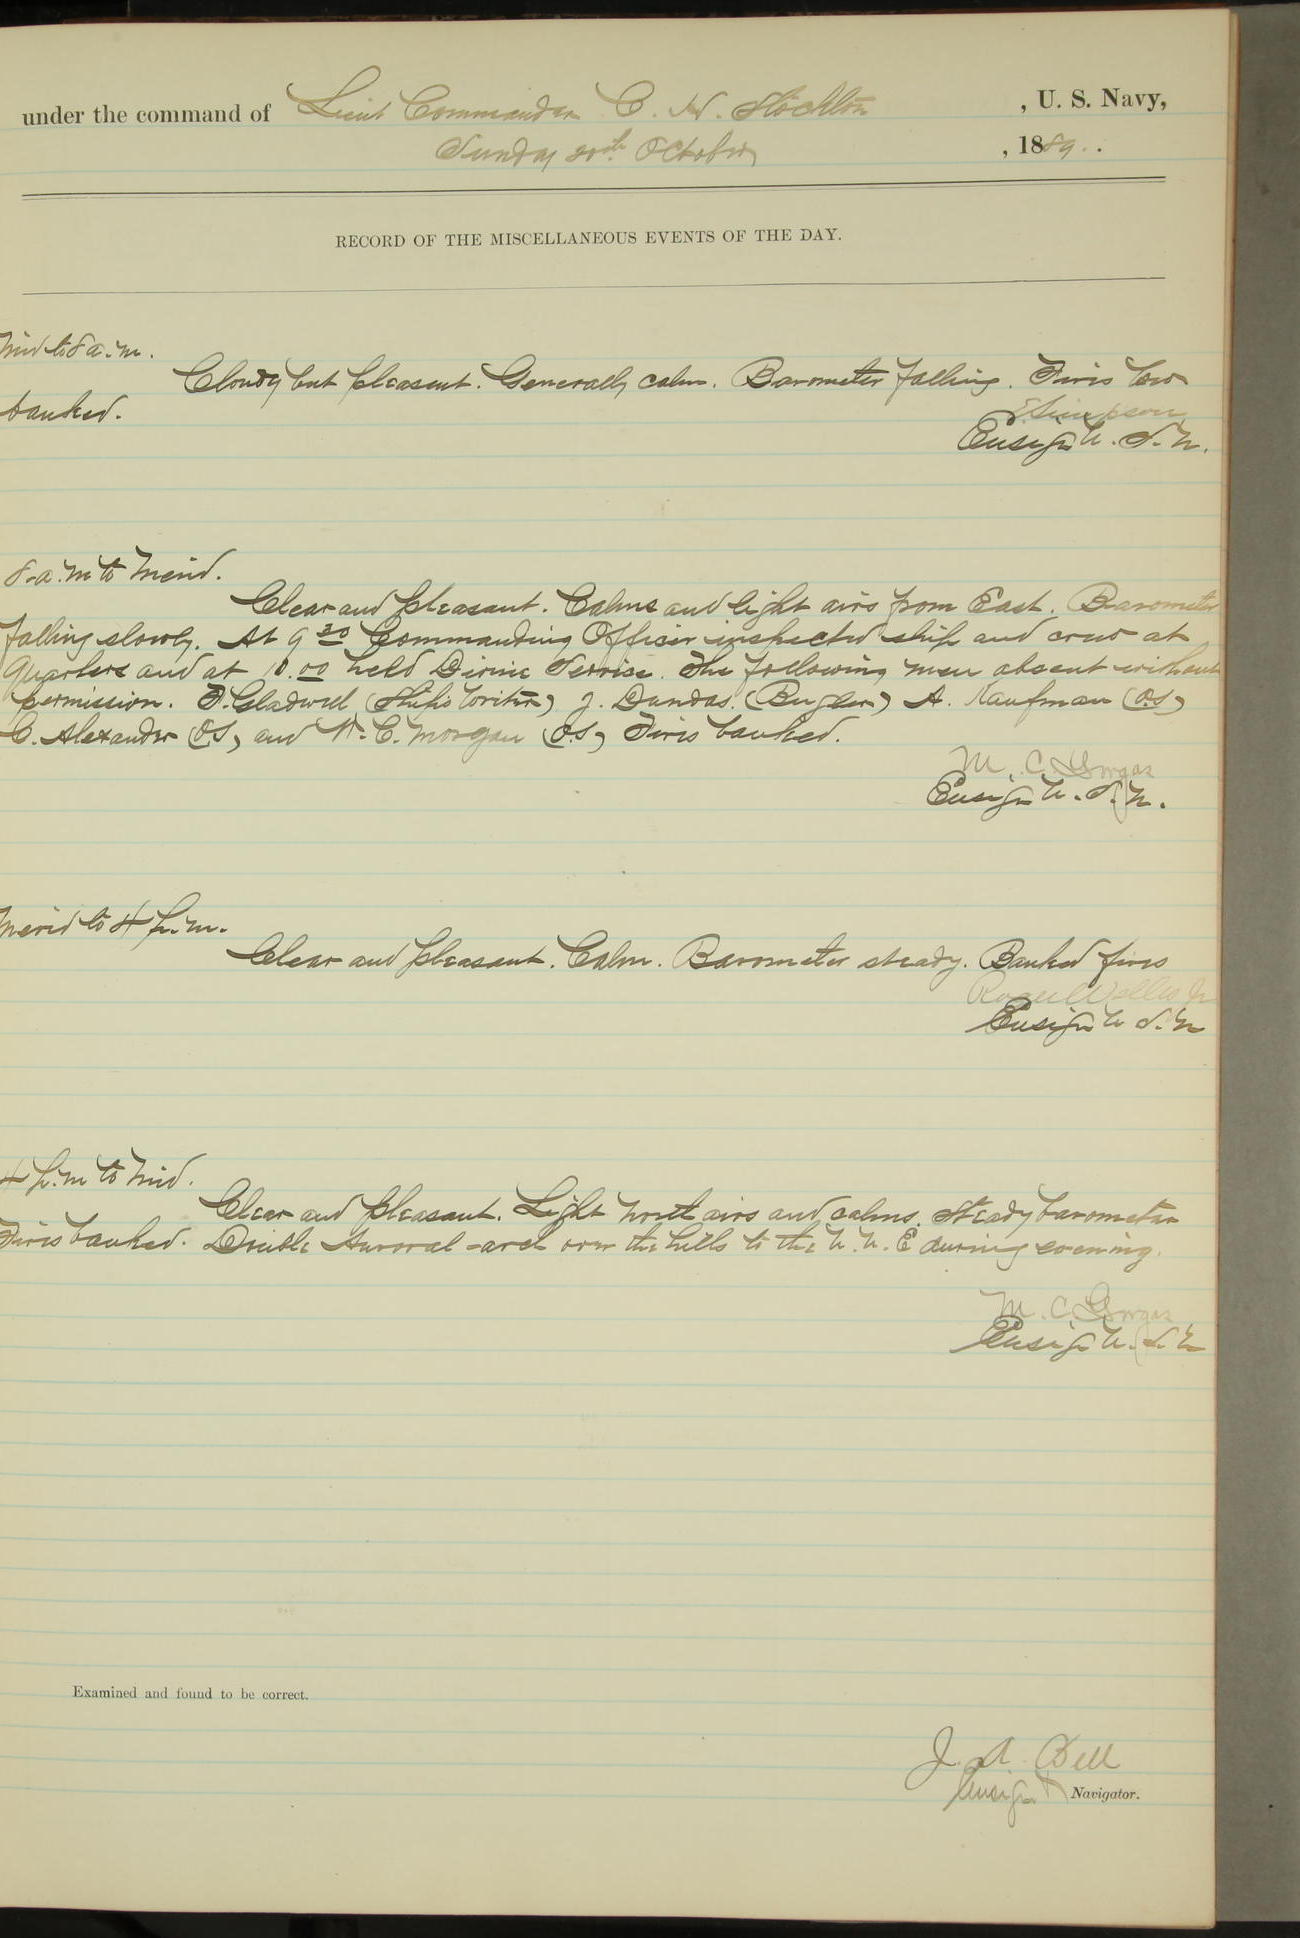 under the command of Lieut Commander C. H. Stockton, U. S. Navy,
Sunday 20th October, 1889..
RECORD OF THE MISCELLANEOUS EVENTS OF THE DAY.
Mid to 8 a.m.
Cloudy but pleasant. Generally calm. Barometer falling. Fires low
banked.
E Simpson
Ensign U. S. N.
8 a.m to Merid.
Clear and pleasant. Calms and light airs from East. Barometer
falling slowly. At 9 30 Commanding Officer inspected ship and crew at
Quarters and at 10.00 held Divine Service. The following men absent without
permission. F. Gladwell (Ship's Writer) J. Dundas. (Bugler) A. Kaufman (O.S)
C. Alexander (O.S) and W. C. Morgan (O.S) Fires banked.
M. C. Gorgas
Ensign U. S. N.
Merid to 4 p.m.
Clear and pleasant. Calm. Barometer steady. Banked fires
Roger Welles Jr
Ensign U S. N
4 p.m to Mid.
Clear and pleasant. Light North airs and calms. Steady barometer
Fires banked. Double Auroral-arch over the hills to the N. N. E during evening.
M. C. Gorgas
Ensign U. S. N
Examined and found to be correct.
J. A. Dell
Ensign & Navigator.